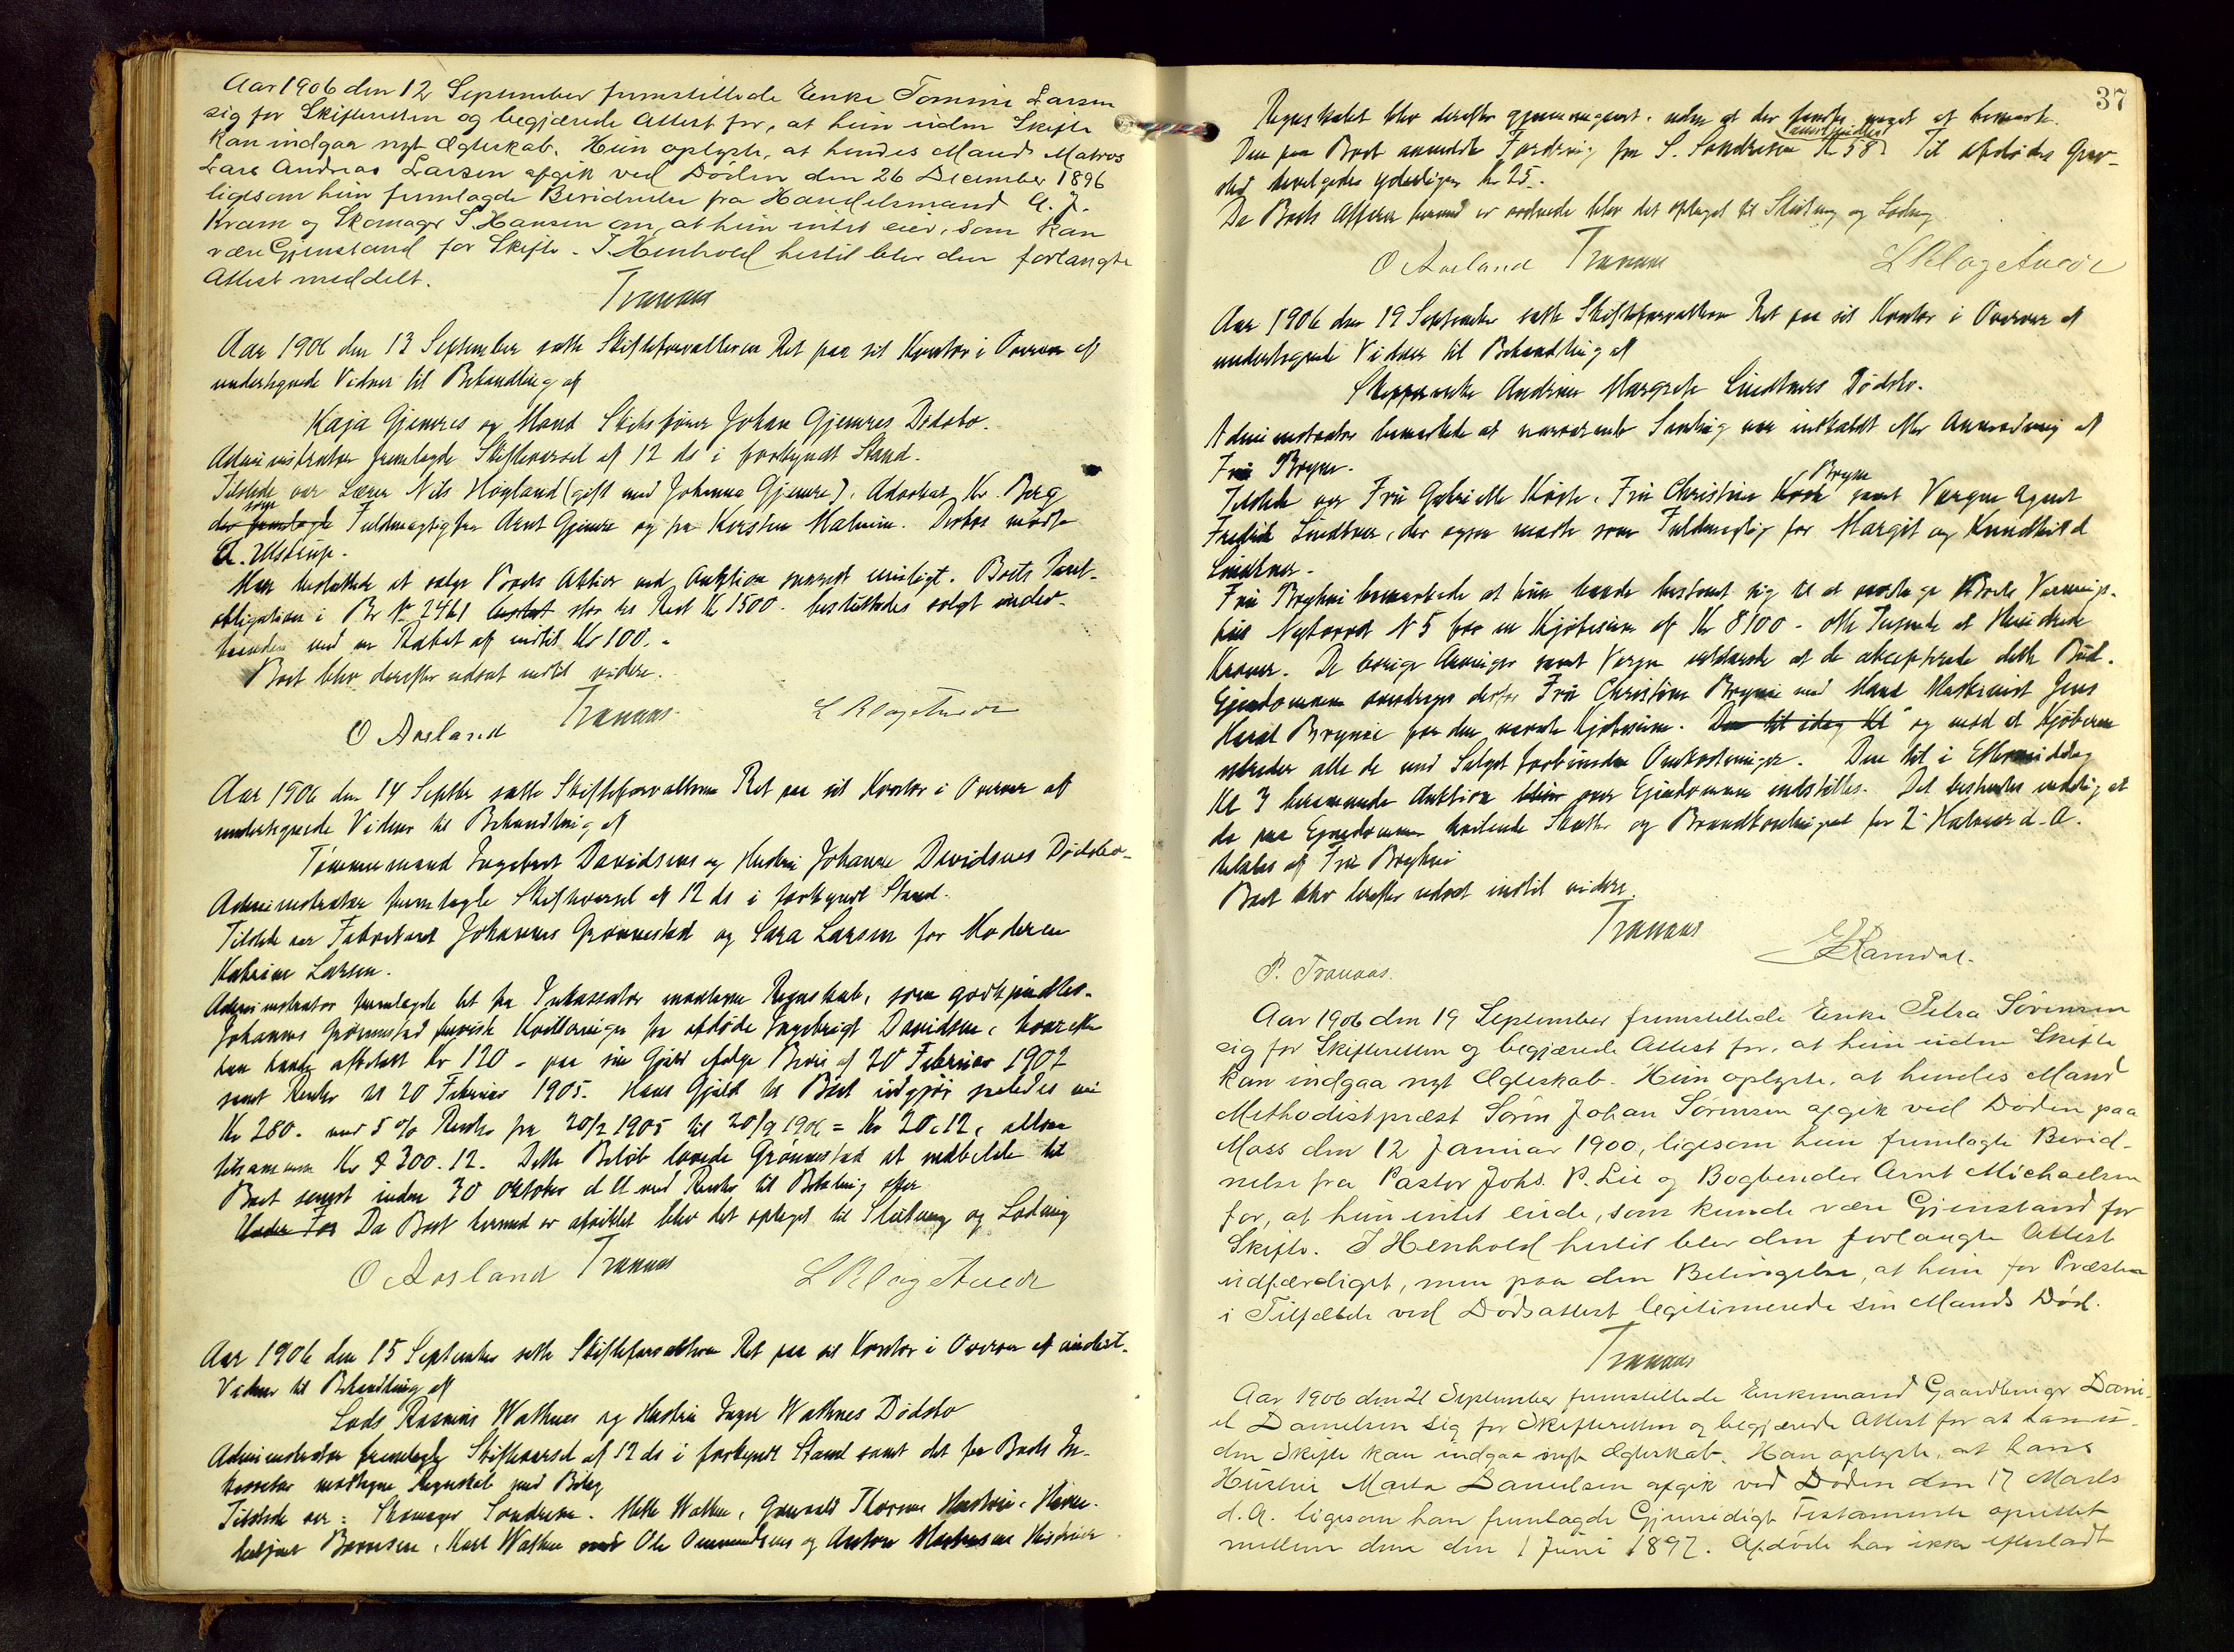 Aar 1906 den 12 September fremstillede Enke Tomine Larsen
sig for Skifteretten og begjærede Attest for, at hun uden Skifte
kan indgaa nyt Ægteskab. Hun oplyste, at hendes Mand Matros
Lars Andreas Larsen afgik ved Døden den 26 December 1896
ligesom hun fremlagde Bevidnelse fra Handelsmand A. J.
Kvam og Skomager S. Hansen om, at hun intet eier, som kan
være Gjenstand for Skifte. I Henhold hertil blev den forlangte
Attest meddelt.
Tranaas
Aar 1906 den 13 September satte Skifteforvalteren Ret paa sit Kontor i Overvær af
undertegnede Vidner til Behandling af
Kaja Gjemres og Mand Skibsfører Johan Gjemres Dødsbo.
Administrator fremlagde Skiftevarsel af 12 ds i forkyndt Stand.
Tilstede var Lærer Nils Høgland (gift med Johanna Gjemre), Advokat Kr. Berg
som
der fremlagde Fuldmagt fra Arnt Gjemre og fra Kirsten Malmin. Desuden mødte
A. Ulstrup.
Man besluttede at sælge Boets Aktier ved Auktion snarest muligt. Boets Pant-
obligation i Br No 2461 stor til Rest Kr 1500. besluttedes solgt under-
haanden med en Rabat af indtil Kr 100.-
Boet blev derefter udsat indtil videre.
O Aosland Tranaas
Aar 1906 den 14 Septbr satte Skifteforvalteren Ret paa sit Kontor i Overvær af
undertegnede Vidner til Behandling af
Tømmermand Ingebret Davidsens og Hustru Johanne Davidsens Dødsbo.
Administrator fremlagde Skiftevarsel af 12 ds i forkyndt Stand.
Tilstede var Johannes Grønnestad og Sara Larsen for Moderen
Katrine Larsen.
Administrator fremlagde det fra Inkassator modtagne Regnskab, som godkjendtes.
Johannes Grønnestad foreviste Kvitteringer fra afdøde Ingebrigt Davidsen, hvorefter
han havde afbetalt Kr 120 - paa sin Gjæld ifølge Bevis af 20 Februar 1902
samt Renter til 20 Februar 1905. Hans Gjæld til Boet udgjør saaledes nu
Kr 280. med 5 % Rente fra 20/2 1905 til 20/9 1906 = Kr 20.12, altsaa
tilsammen Kr 300.12. Dette Beløb lovede Grønnestad at indbetale til
Boet senest inden 30 Oktober d A med Renter til Betaling sker.
Da Boet hermed er afviklet blev det optaget til Slutning og Lodning
O Aosland Tranaas
Aar 1906 den 15 September satte Skifteforvalteren Ret paa sit Kontor i Overvær af undert.
Vidner til Behandling af
Lods Rasmus Wathnes og Hustru Inger Wathnes Dødsbo
Administrator fremlagde Skiftevarsel af 12 ds i forkyndt Stand samt det fra Boets In-
kassator modtagne Regnskab med Bilag
Tilstede var: Skomager Sondresen. Mette Wathne,
Karl Wathne Ole Ommundsens og Anton
37
Regnskabet blev derefter gjennemgaaet, uden at der fandtes noget at bemærke.
Den paa Boet anmeldte Fordring fra S. Sondresen Kr 58. Til afdødes Grav-
sted bevilgedes yderligere Kr 25.
Da Boets Affærer hermed er ordnede blev det optaget til Slutning og Lodning
O Aosland Tranaas
Aar 1906 den 19 September satte Skifteforvalteren Ret paa sit Kontor i Overvær af
undertegnede Vidner til Behandling af
Skipperenke Andrea Margrete Lindtners Dødsbo.
Administrator bemærkede at nærværende Samling var indkaldt efter Anmodning af
Fru Bryne.
Bryne
Tilstede var Fru Gabrielle Køste, Fru Christine samt Værgen Agent
Fredrik Lindtner, der ogsaa mødte som Fuldmægtig for Margit og
Lindtner.
Fru Bryhni bemærkede at hun havde bestemt sig til at overtage Boets Vaanings-
hus Nytorvet N 5 for en Kjøbesum af Kr 8100 - otte Tusinde et Hundrede
Kroner. De øvrige Arvinger samt Værgen erklærede at de akcepterede dette Bud.
Eiendommen overdrages derfor Fru Christine Brynie med Mand Maskinist Jens
Harat Brynie for den nævnte Kjøbesum. Den til idag Kl og mod at Kjøberen
udreder alle de med Salget forbundne Omkostninger. Den til i Eftermiddag
Kl 3 berammede Auktion over Eiendommen indstilles. Det bestemtes endelig at
de paa Eiendommen hvilende Skatter og Brandkontingent for 2 Halvaar d. A.
betales af Fru Bryhni
Boet blev derefter udsat indtil videre.
Tranaas
P. Tranaas.
Aar 1906 den 19 September fremstillede Enke Petra Sørensen
sig for Skifteretten og begjærede Attest for, at hun uden Skifte
kan indgaa nyt Ægteskab. Hun oplyste, at hendes Mand
Methodistpræst Søren Johan Sørensen afgik ved Døden paa
Moss den 12 Januar 1900, ligesom hun fremlagde Bevid-
nelse fra Pastor Johs. P. Lie og Bogbinder Arnt Michaelsen
for, at hun intet eiede, som kunde være Gjenstand for
Skifte. I Henhold hertil blev den forlangte Attest
udfærdiget, men paa den Betingelse, at hun for Præsten
i Tilfælde ved Dødsattest legitimerede sin Mands Død.
Tranaas
Aar 1906 den 21 September fremstillede Enkemand Gaardbruger Dani-
el Danielsen sig for Skifteretten og begjærede Attest for at han u-
den Skifte kan indgaa nyt Ægteskab. Han oplyste, at hans
Hustru Marta Danielsen afgik ved Døden den 17 Marts
d. A. ligesom han fremlagde Gjensidigt Testamente oprettet
mellem dem den 1 Juni 1897. Afdøde har ikke efterladt